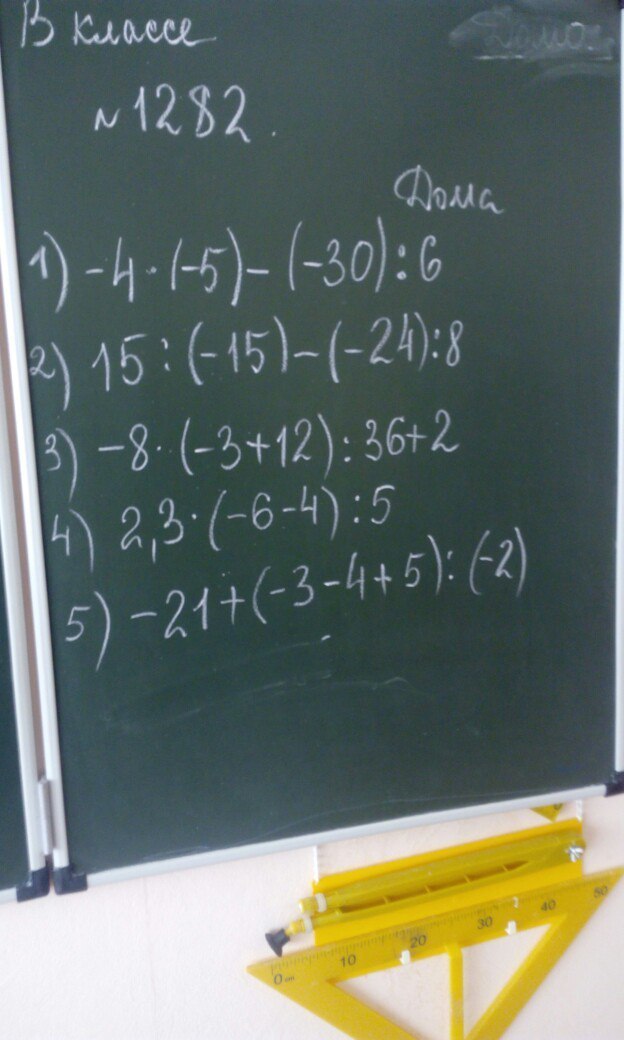 В классе
Дома
№1282.
Дома
1) -4·(-5)-(-30):6
2) 15:(-15)-(-24):8
3) -8·(-3+12):36+2
4) 2,3·(-6-4):5
5) -21+(-3-4+5):(-2)
0 cm 10 20 30 40 50